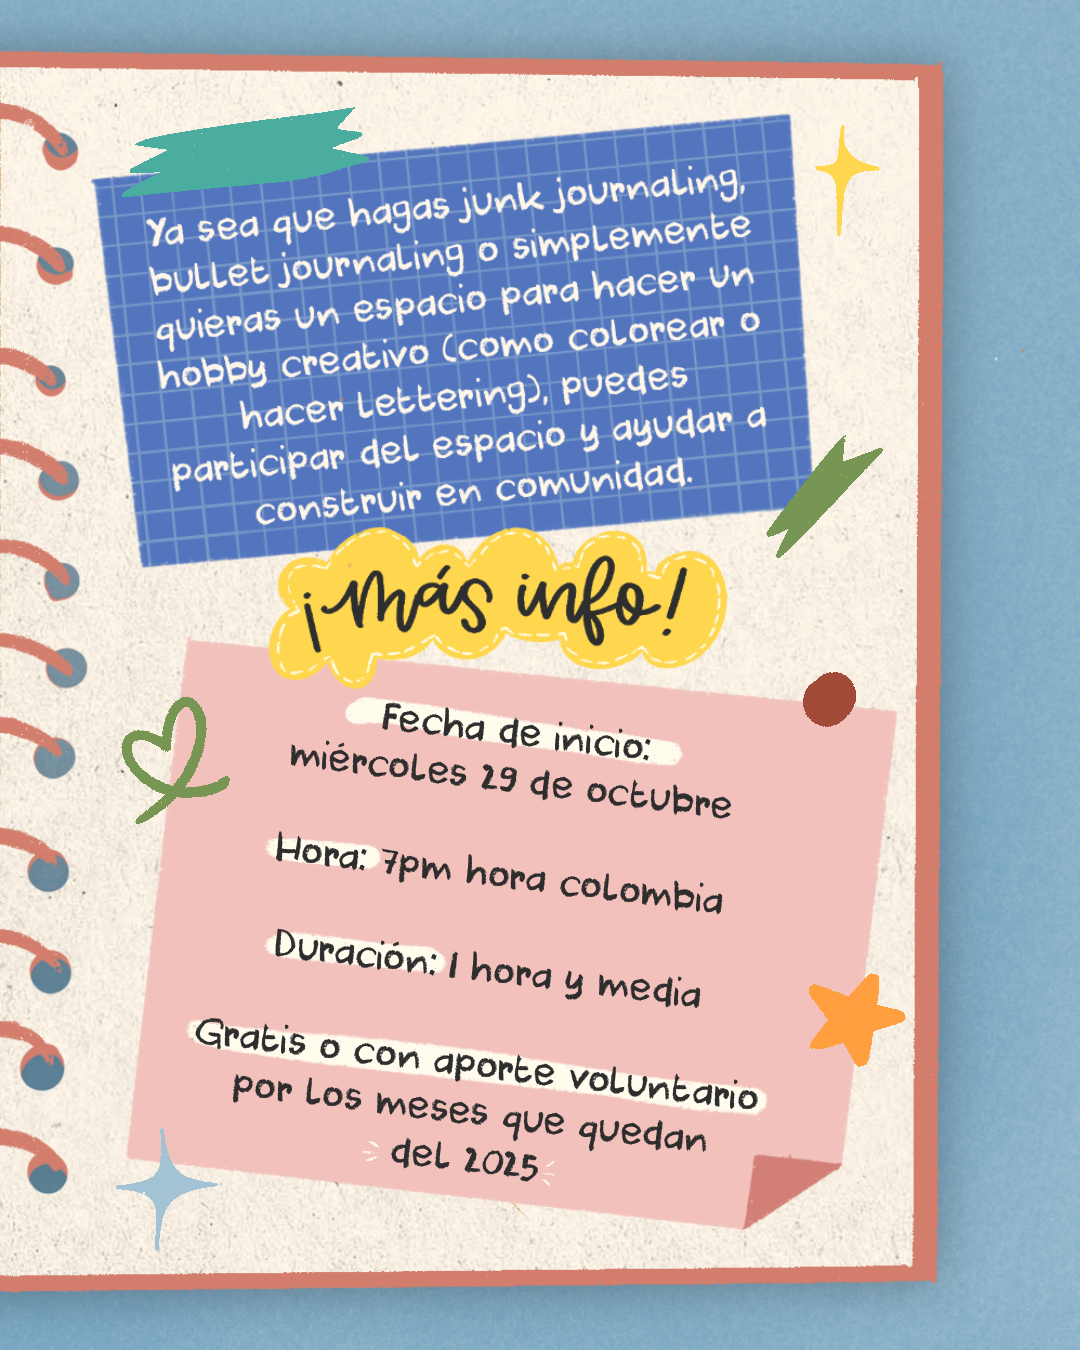 Ya sea que hagas junk journaling,
bullet journaling o simplemente
quieras un espacio para hacer un
hobby creativo (como colorear o
hacer lettering), puedes
participar del espacio y ayudar a
construir en comunidad.
¡más info!
Fecha de inicio:
miércoles 29 de octubre
Hora: 7pm hora colombia
Duración: 1 hora y media
Gratis o con aporte voluntario
por los meses que quedan
del 2025